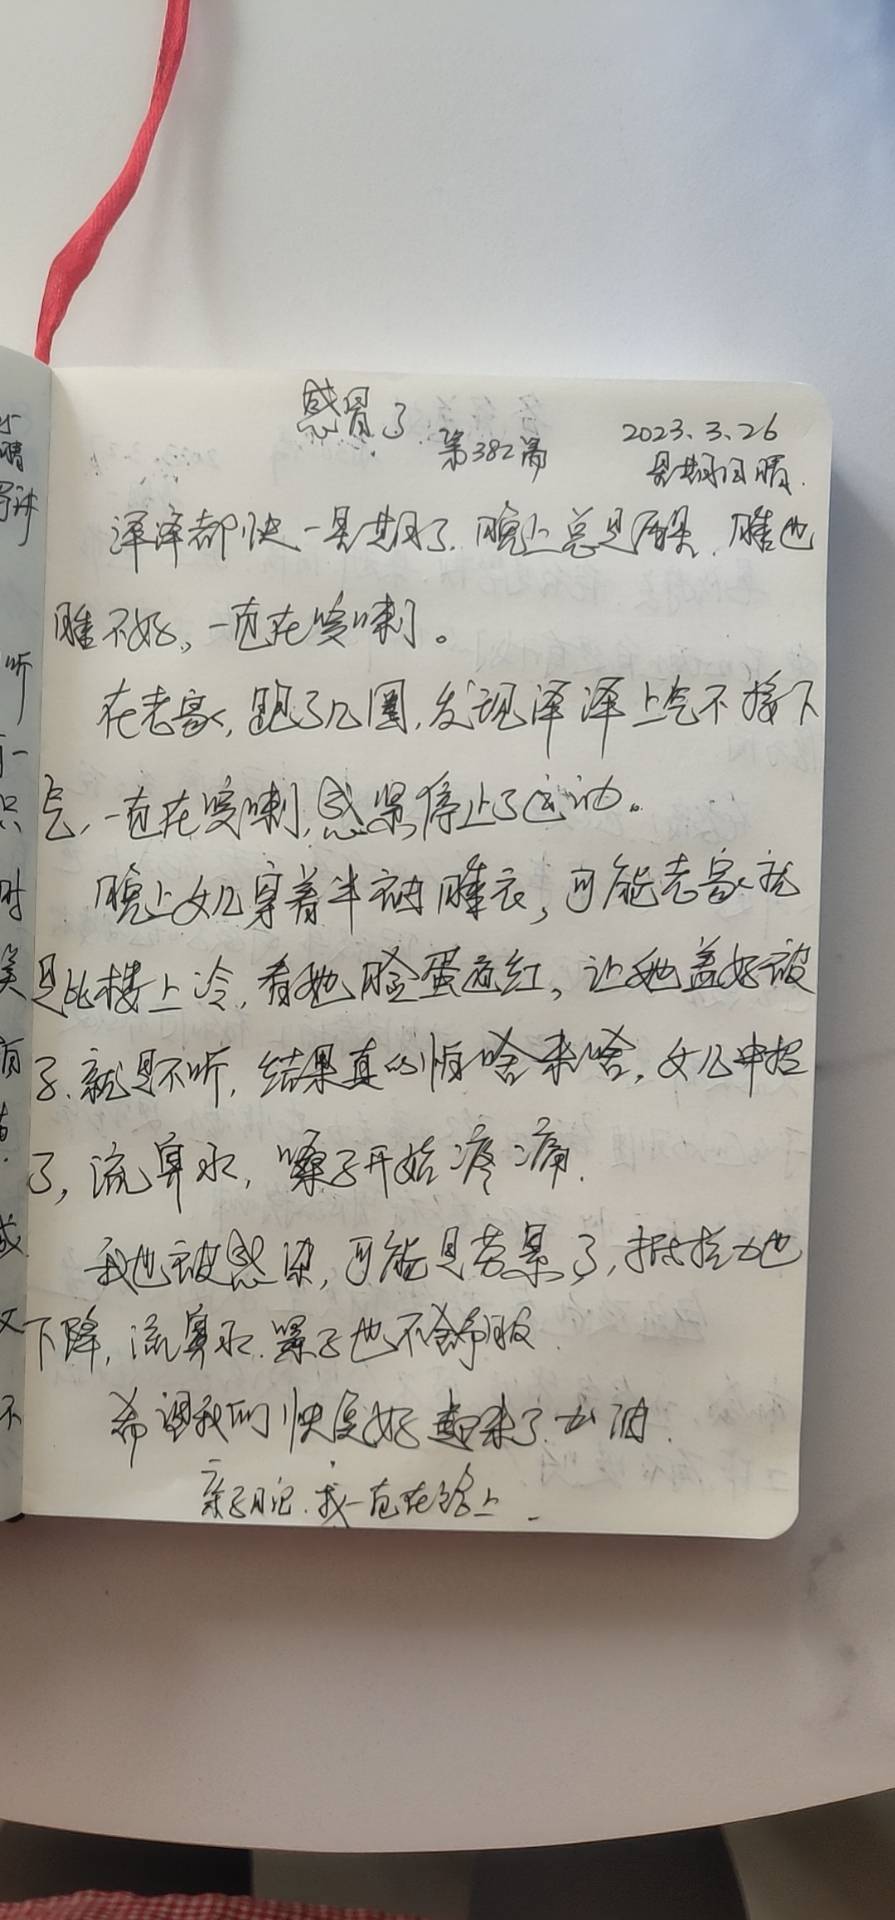 感冒了
第382篇
2023.3.26
星期日 晴.
泽泽都快一星期了.晚上总是 睡也
睡不好,一直在咳嗽。
在老家,跑了几圈,发现泽泽上气不接下
气,一直在咳嗽,感紧停止了运动。
晚上女儿穿着半袖睡衣,可能老家就
是比楼上冷,看她脸蛋通红,让她盖好被
子.就是不听,结果真的怕啥来啥,女儿中招
了,流鼻水,嗓子开始疼痛.
我也被感染,可能是劳累了,抵抗力也
下降,流鼻水.嗓子也不舒服.
希望我们快点好起来了.加油.
亲子日记.我一直在路上.